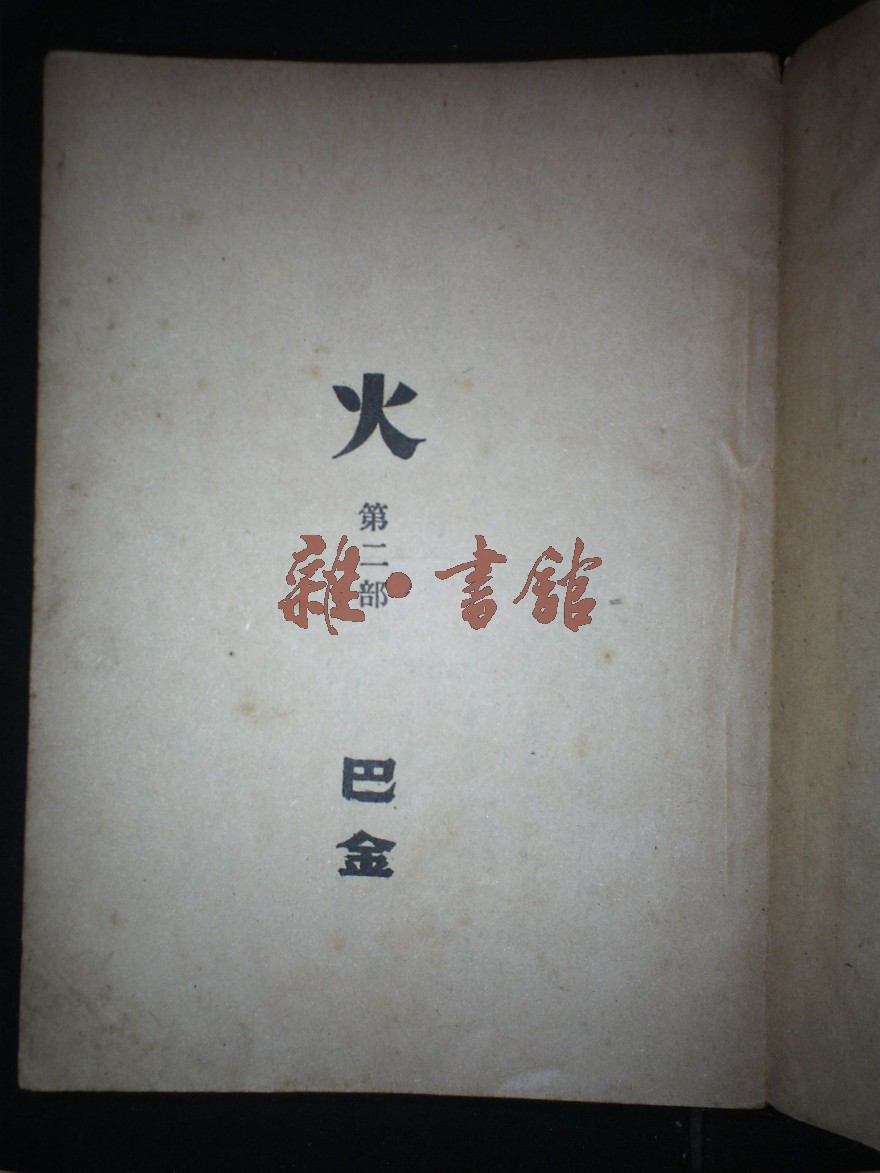 火
第二部
雜·書館
巴金